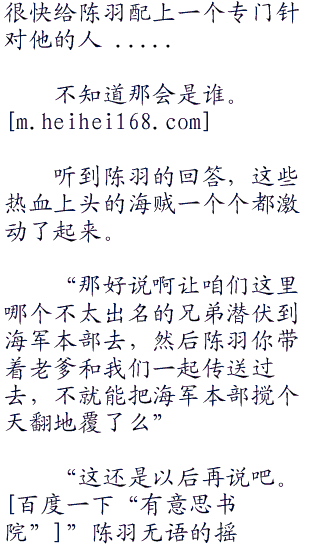 很快给陈羽配上一个专门针
对他的人 .....
不知道那会是谁。
[m.heihei168.com]
听到陈羽的回答，这些
热血上头的海贼一个个都激
动了起来。
“那好说啊让咱们这里
哪个不太出名的兄弟潜伏到
海军本部去，然后陈羽你带
着老爹和我们一起传送过
去，不就能把海军本部搅个
天翻地覆了么”
“这还是以后再说吧。
[百度一下“有意思书
院”]”陈羽无语的摇